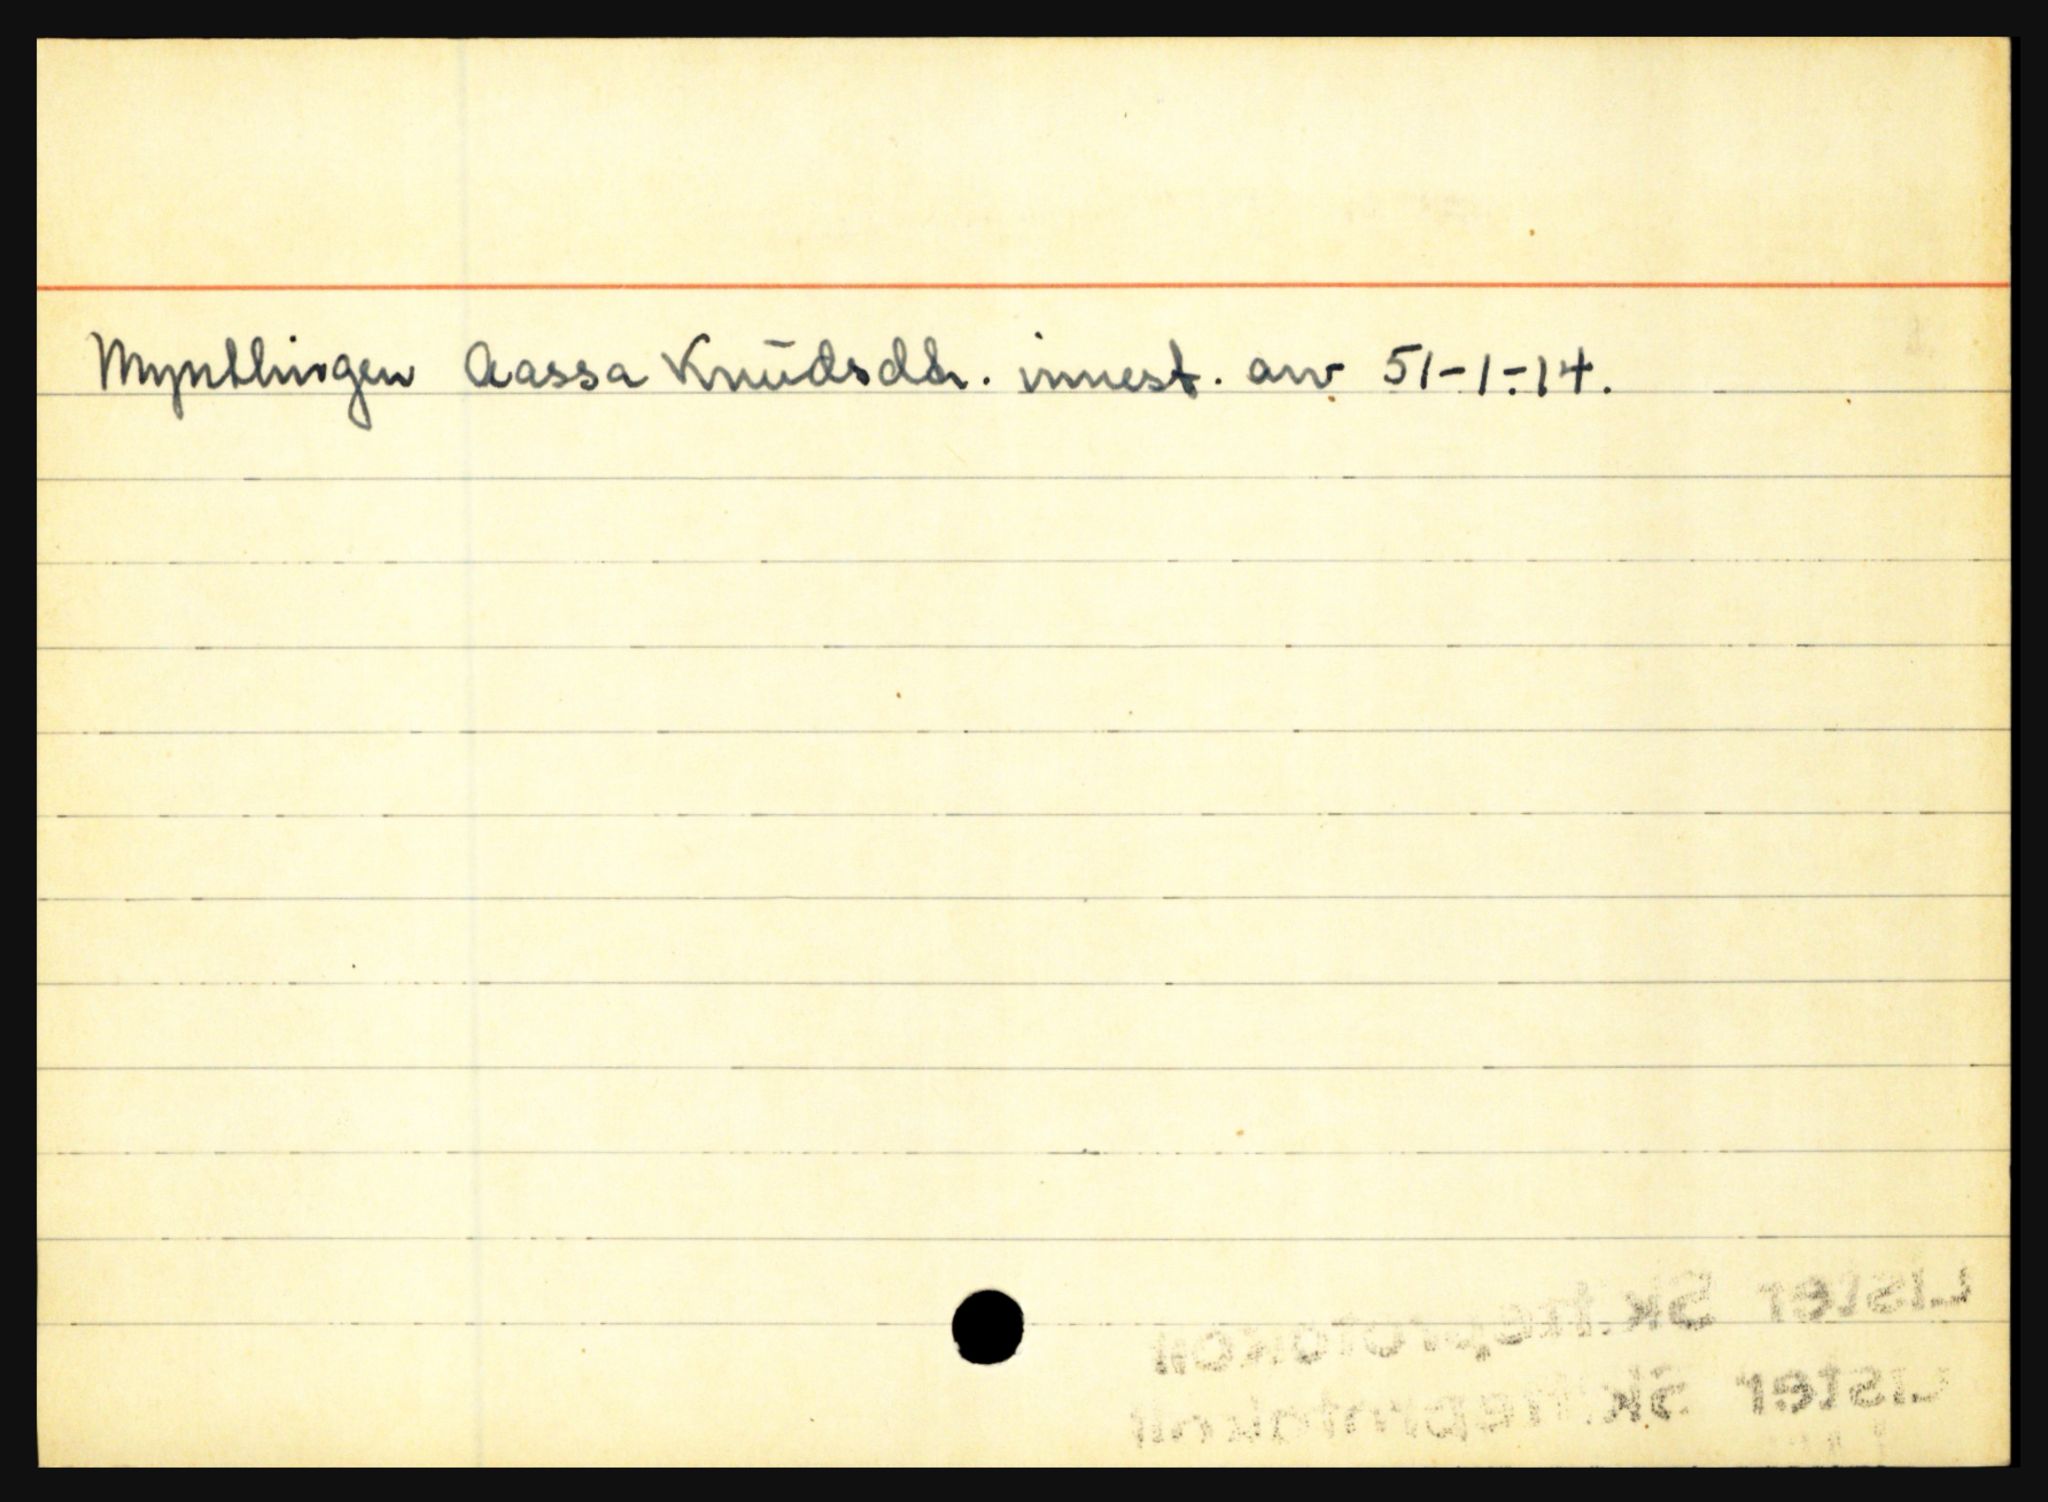 Myndlingen Aassa Knudsdtr. innest. anv 51-1-14.
Lister Skifteprotokoll
Lister Skifteprotokoll